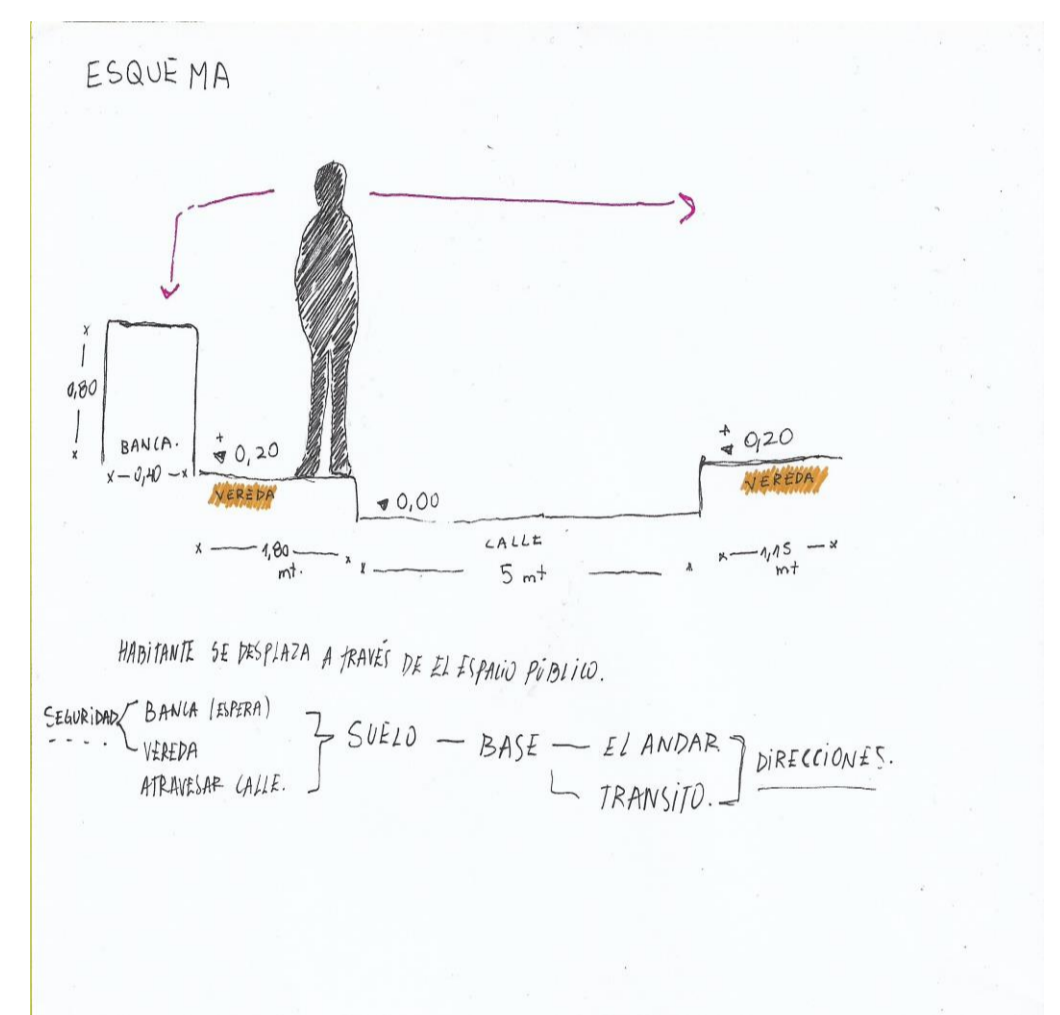 ESQUEMA
0,80
BANCA.
x-0,40-x
+ 0,20
VEREDA
0,00
+ 0,20
VEREDA
CALLE
1,80
mt.
5 mt
1,15
mt
HABITANTE SE DESPLAZA A TRAVÉS DE EL ESPACIO PÚBLICO.
SEGURIDAD BANCA (ESPERA)
VEREDA
ATRAVESAR CALLE.
SUELO — BASE — EL ANDAR
TRANSITO.
DIRECCIONES.